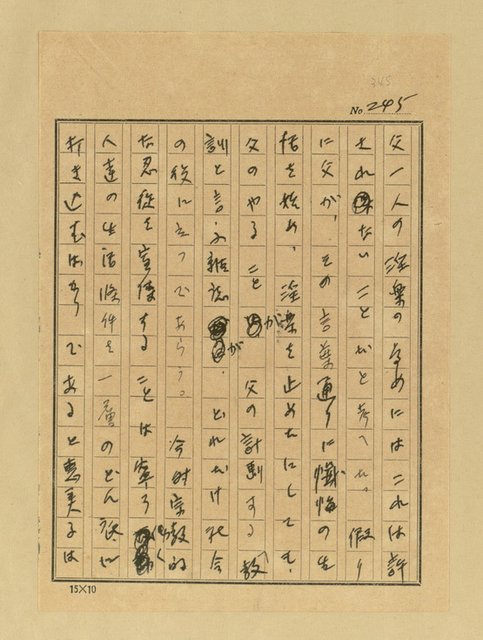 345
No. 245
父一人の淫樂の為めにはこれは許
されないことだと考へた。假り
に父が、その言葉通りに懺悔の生
活を始め、淫樂を止めたにしても、
父のやることが父の計劃する「教
訓」と言ふ雜誌が、どれだけ社会
の役に立つであらう。今時宗教的
な忍従を宣傳することは寧ろ
人達の生活條件を一層のどん底に
打き込むばかりであると恵美子は
15×10